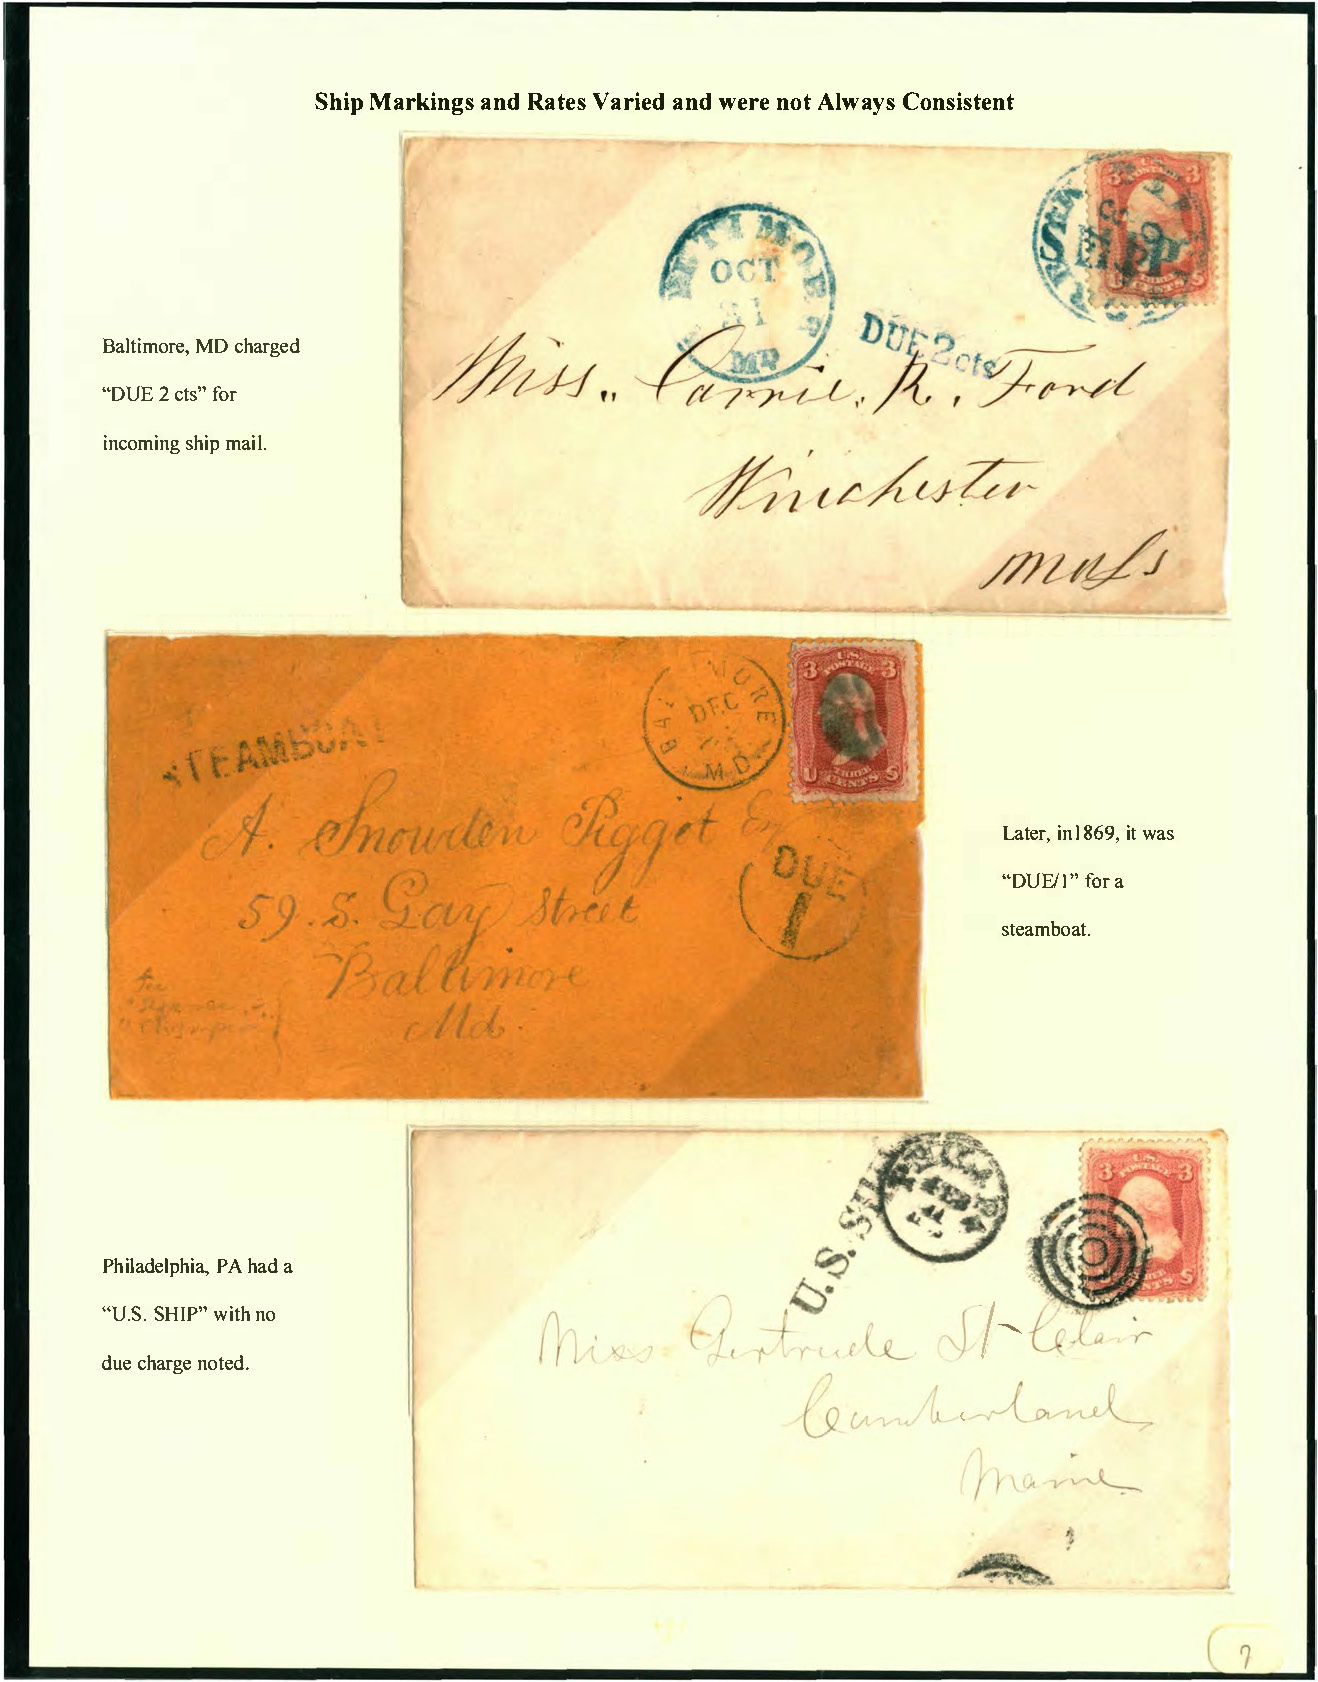 Ship Markings and Rates Varied and were not Always Consistent
Baltimore, MD charged
“DUE 2 cts” for
incoming ship mail.
OCT
MD
DUE 2 cts
SHIP
3 3
U THREE S
CENTS
Miss. Carrie. R. Ford
Winchester
Mass
STEAMBOAT
BALTIMORE
DEC
MD.
U.S.
POSTAGE
3 3
THREE
U CENTS S
A. Snowden Piggot Esq
DUE
1
59. S. Gay Street
Baltimore
Md.
Later, in1869, it was
“DUE/1” for a
steamboat.
Philadelphia, PA had a
“U.S. SHIP” with no
due charge noted.
U.S. SHIP
PHILA. PA
U.S.
POSTAGE
3 3
CENTS S
Miss Gertrude St Clair
Cumberland
Maine
7